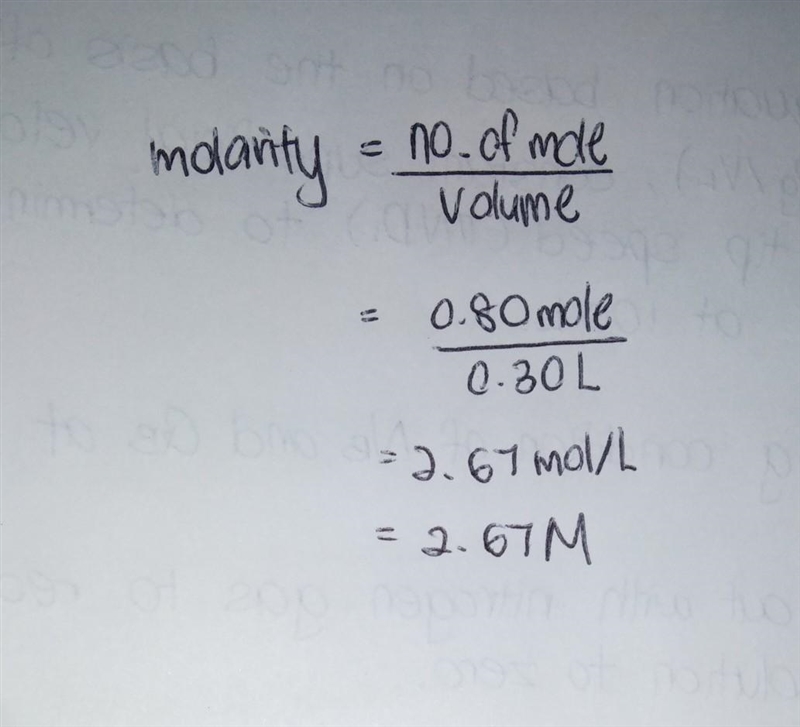 molarity = no. of mole
volume
= 0.80 mole
0.30 L
= 2.67 mol/L
= 2.67 M